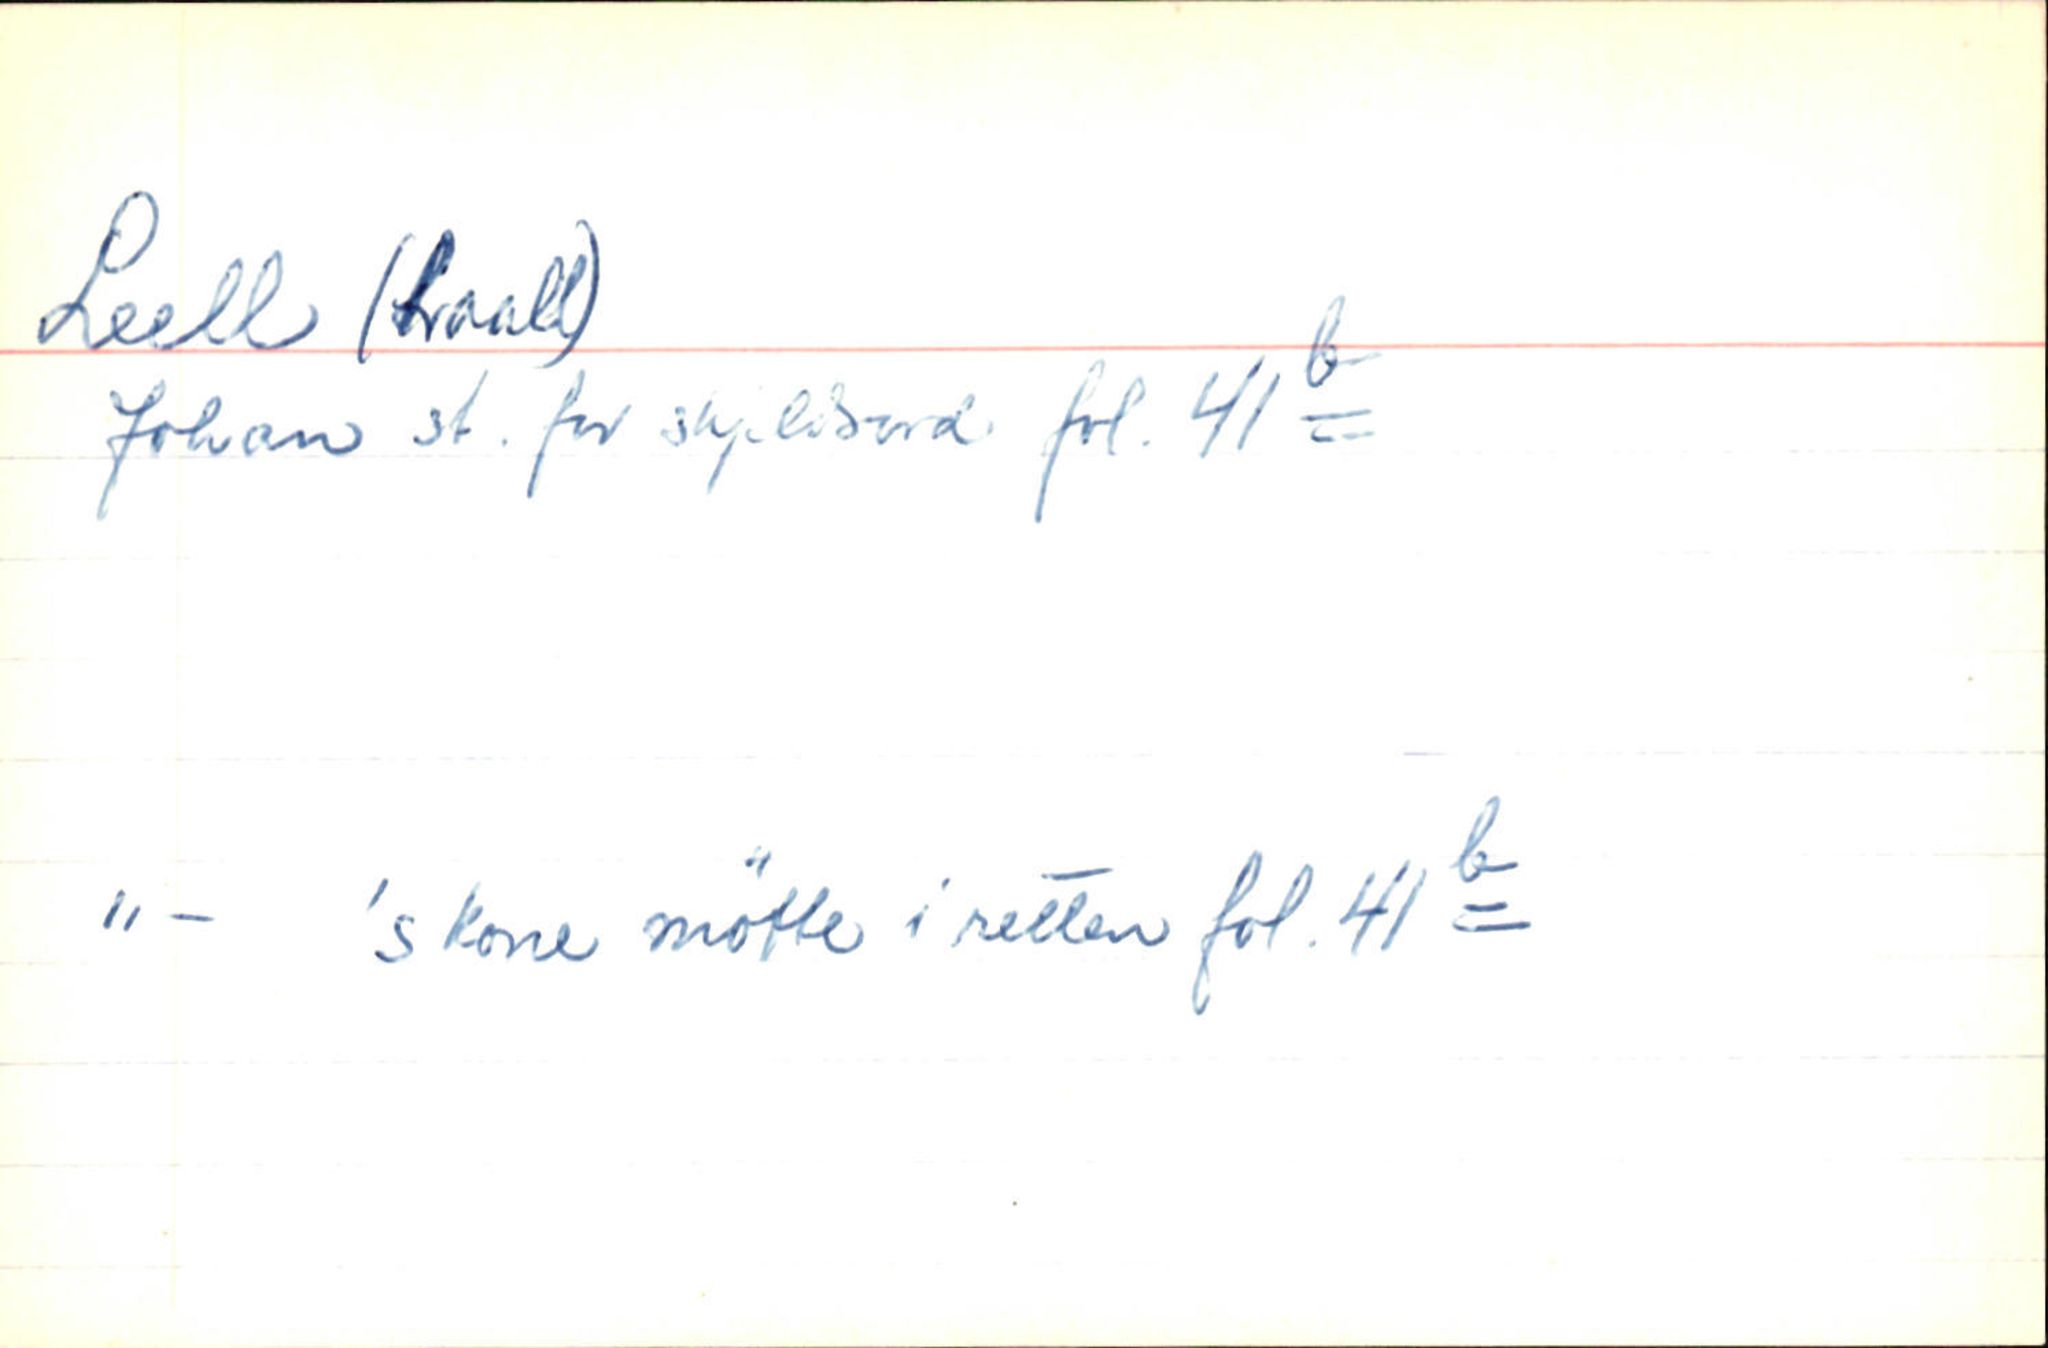 Leell (Kraall)
Johan st. for skjeldsord fol. 41 b
" - 's kone mötte i retten fol. 41 b